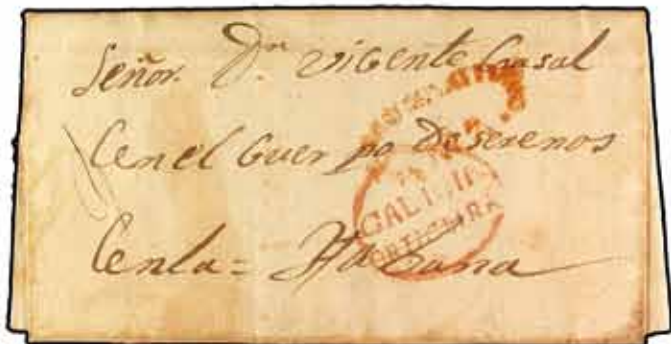 Señor. Dn vicente Casal
en el Cuer po De serenos
en la = Habana
GALICIA
ORTIGUEIRA